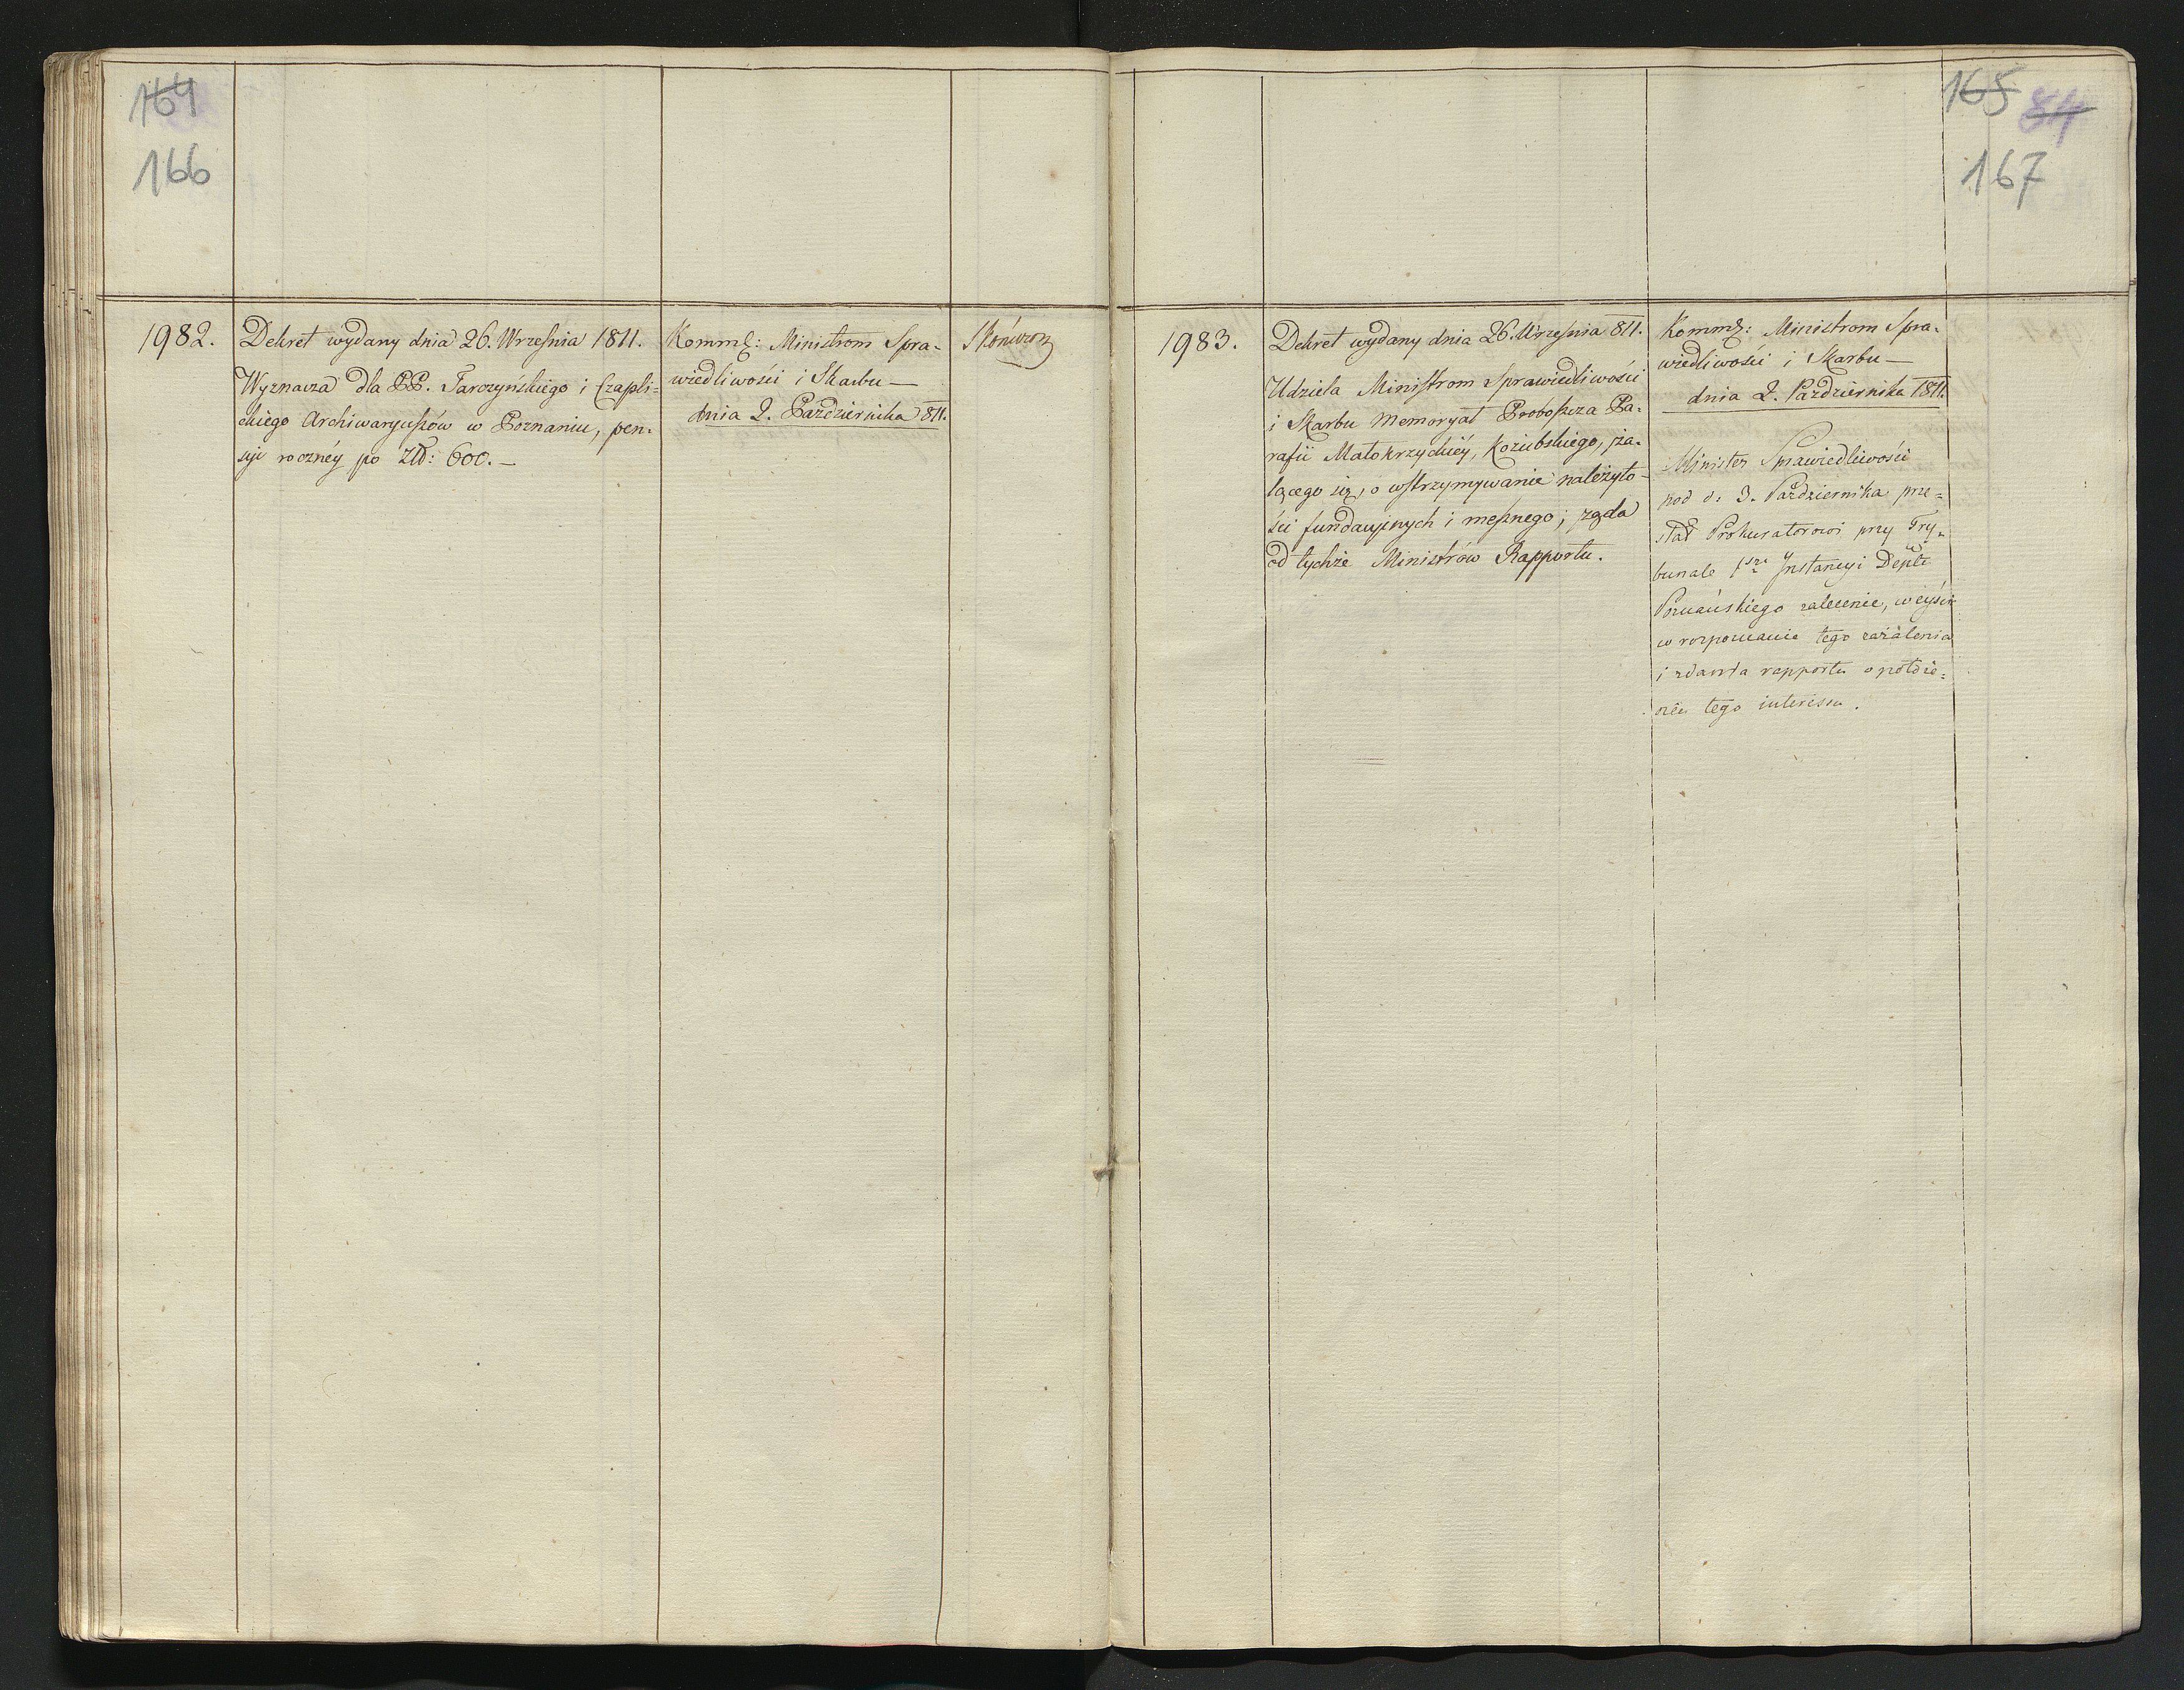 164
166
1982.
Dekret wydany dnia 26. Września 1811.
Wyznacza dla PP. Tarczyńskiego i Czapli-
ckiego Archiwaryuszów w Poznaniu, pen-
syi roczney po Złt: 600.—
Kommk: Ministrom Spra-
wiedliwości i Skarbu—
dnia 2. Października 811.
Skończon
165 84
167
1983.
Dekret wydany dnia 26. Września 811.
Udziela Ministrom Sprawiedliwości
i Skarbu Memoryał Proboszcza Pa-
rafii Małokrzyckiéy, Kozubskiego, ża-
lącego się, o wstrzymywanie należyto-
ści funduszjnych i mesznego; żąda
od tychże Ministrów Rapportu.
Kommk: Ministrom Spra-
wiedliwości i Skarbu—
dnia 2. Października 1811.
Minister Sprawiedliwości
pod d. 3. Października prze-
słał Prokuratorowi przy Try-
bunale 1szej Instancyi Deptu
Poznańskiego zalecenie, weyścia
w rozpoznanie tego zażalenia
i zdania rapportu o położe-
niu tego interessu.